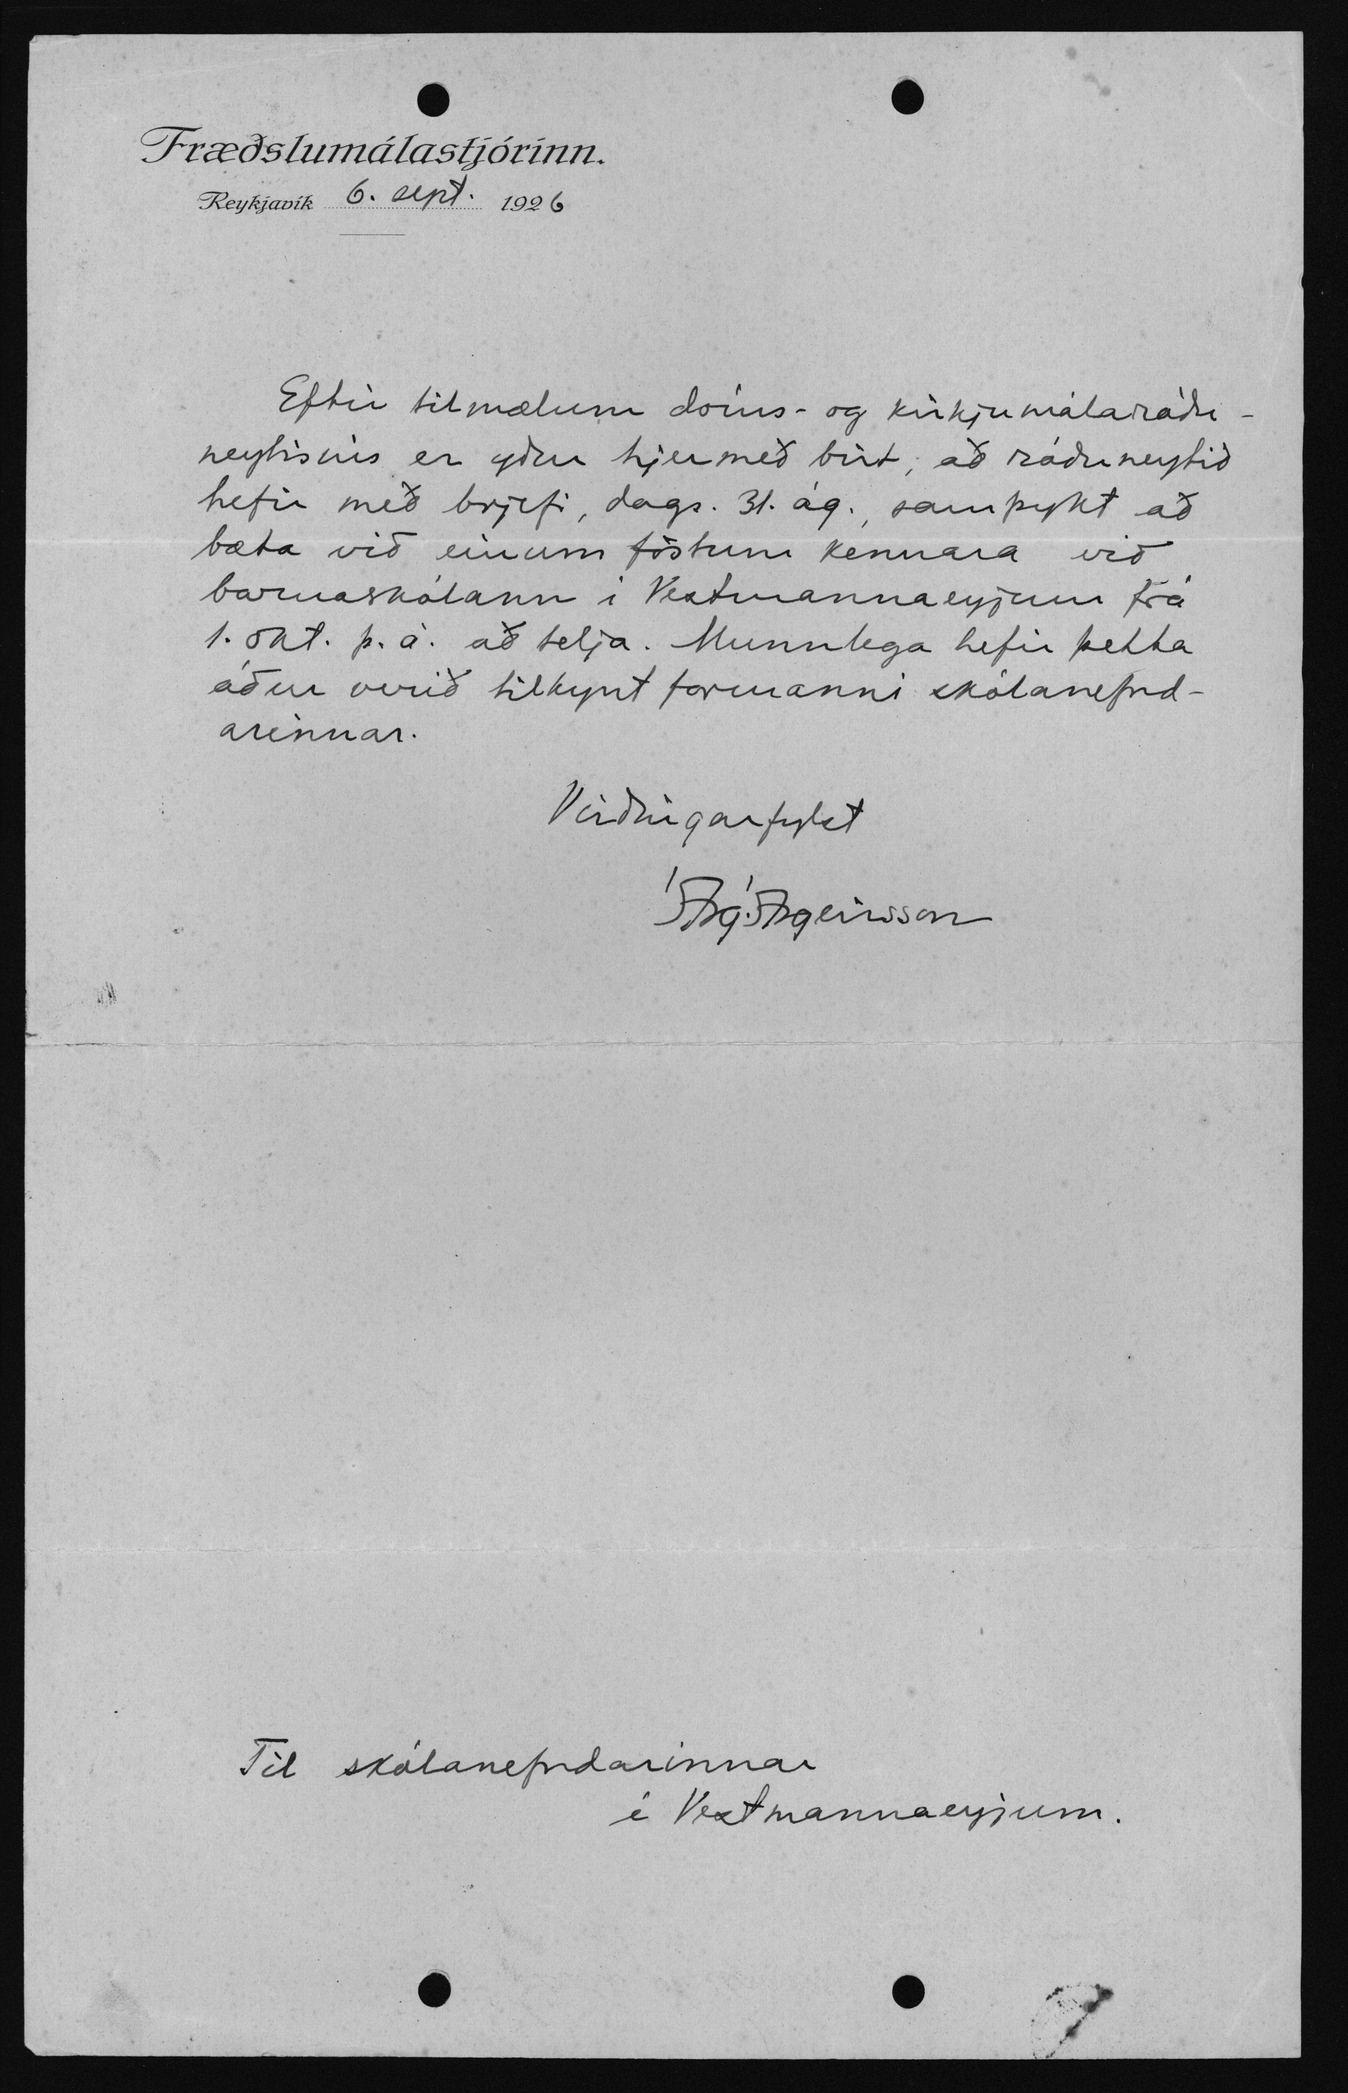 Fræðslumálastjórinn.
Reykjavík 6. sept. 1926
Eftir tilmælum dóms- og kirkjumálaráðu-
neytisins er yður hjermeð birt, að ráðuneytið
hefir með brjefi, dags. 31. ág., samþykt að
bæta við einum föstum kennara við
barnaskólann í Vestmannaeyjum frá
1. okt. þ.á. að telja. Munnlega hefir þetta
áður verið tilkynt formanni skólanefnd-
arinnar.
Virðingarfylst
Ásg. Ásgeirsson
Til skólanefndarinnar
í Vestmannaeyjum.